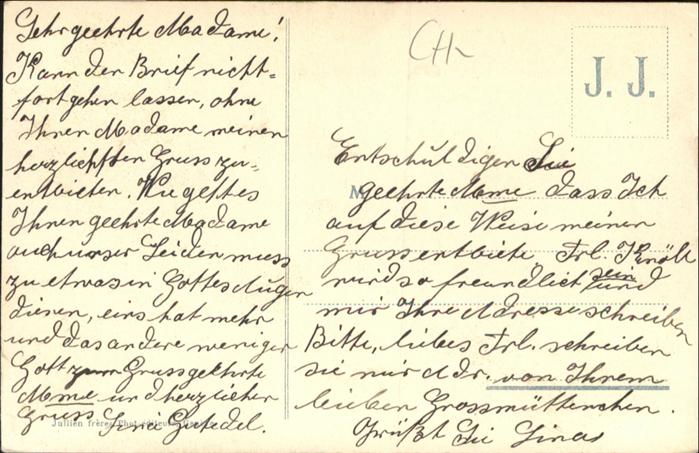 Sehr geehrte Madame!
Kann den Brief nicht-
fortgehen lassen, ohne
Ihnen Madame meinen
herzlichsten Gruss zu-
entbieten. Wie geht es
Ihnen geehrte Madame
auch unser Leiden muss
zu etwas in Gottes Augen
dienen, eins hat mehr
und das andere weniger
Gott zum Gruss geehrte
Mme und herzlicher
Gruss
Jullien frères, Phot.
CH-
J. J.
Entschuldigen Sie
geehrte Mme dass Ich
auf diese Weise meinen
Gruss entbiete Frl. Knöll
wird so freundlich sein und
mir Ihre Adresse schreiben
Bitte, liebes Frl. schreiben
sie mir Adr. von Ihrem
lieben Grossmütterchen.
Grüßt Sie Lina